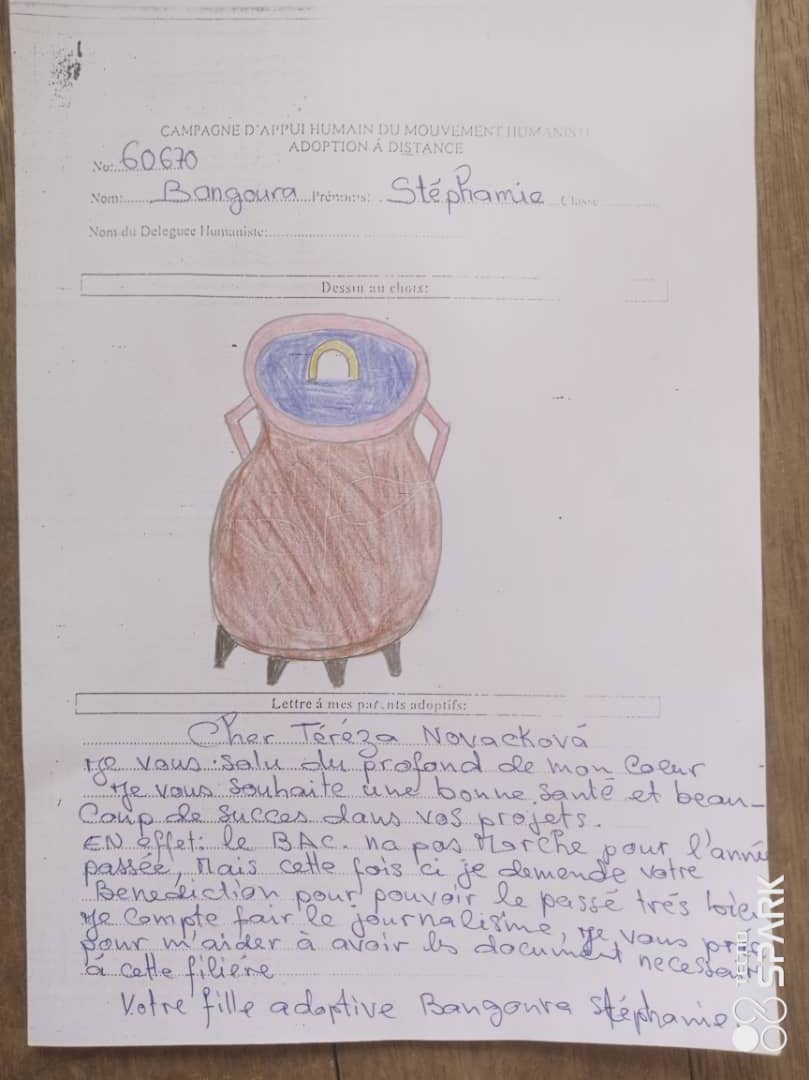 CAMPAGNE D'APPUI HUMAIN DU MOUVEMENT HUMANISTE
ADOPTION Á DISTANCE
No:..60670
Nom:......Bangoura...Prénoms:..Stéphamie...Classe
Nom du Deleguee Humaniste:..........................
Dessin au choix:
Lettre á mes parents adoptifs:
Cher Téréza Novacková
Je vous salu du profond de mon Coeur
Je vous souhaite une bonne santé et beau-
Coup de succes dans vos projets.
EN effet: le BAC. na pas Marche pour l'anné
passée, Mais cette fois ci je demende votre
Benediction pour pouvoir le passé trés bien
Je compte fair le journalisme, je vous prie
pour m'aider à avoir les document necessaire
à cette filiére
Votre fille adoptive Bangoura Stéphanie.
TECNO
SPARK